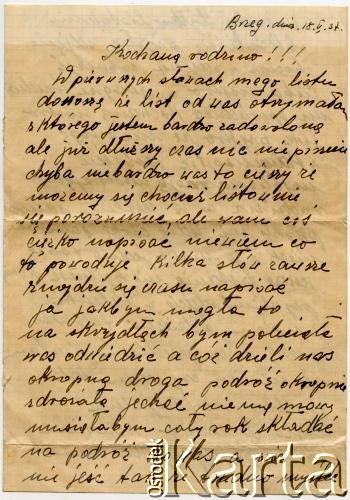 Brzeg. dnia. 18.V. 57.
Kochaną rodzino!!!
W pierwszych słowach mego listu
donoszę że list od was otrzymałam
z którego jestem bardzo zadowoloną
ale już dłuższy czas nic nie piszecie
chyba nie bardzo was to cieszy że
możemy się chocież listownie
się porozumieć, ale wam coś
ciężko napisać niewiem co
to powoduje kilka słów zawsze
znajdzie się czasu napisać
ja jakbym mogła to
na skrzydłach bym poleciała
was odwiedzić a cóż dzieli nas
okropną droga podróż okropnie
zdrożała jechać nie mowy
musiałabym cały rok składać
na podróż do was a
nie jeść tak że trudno
ośrodek
Karta